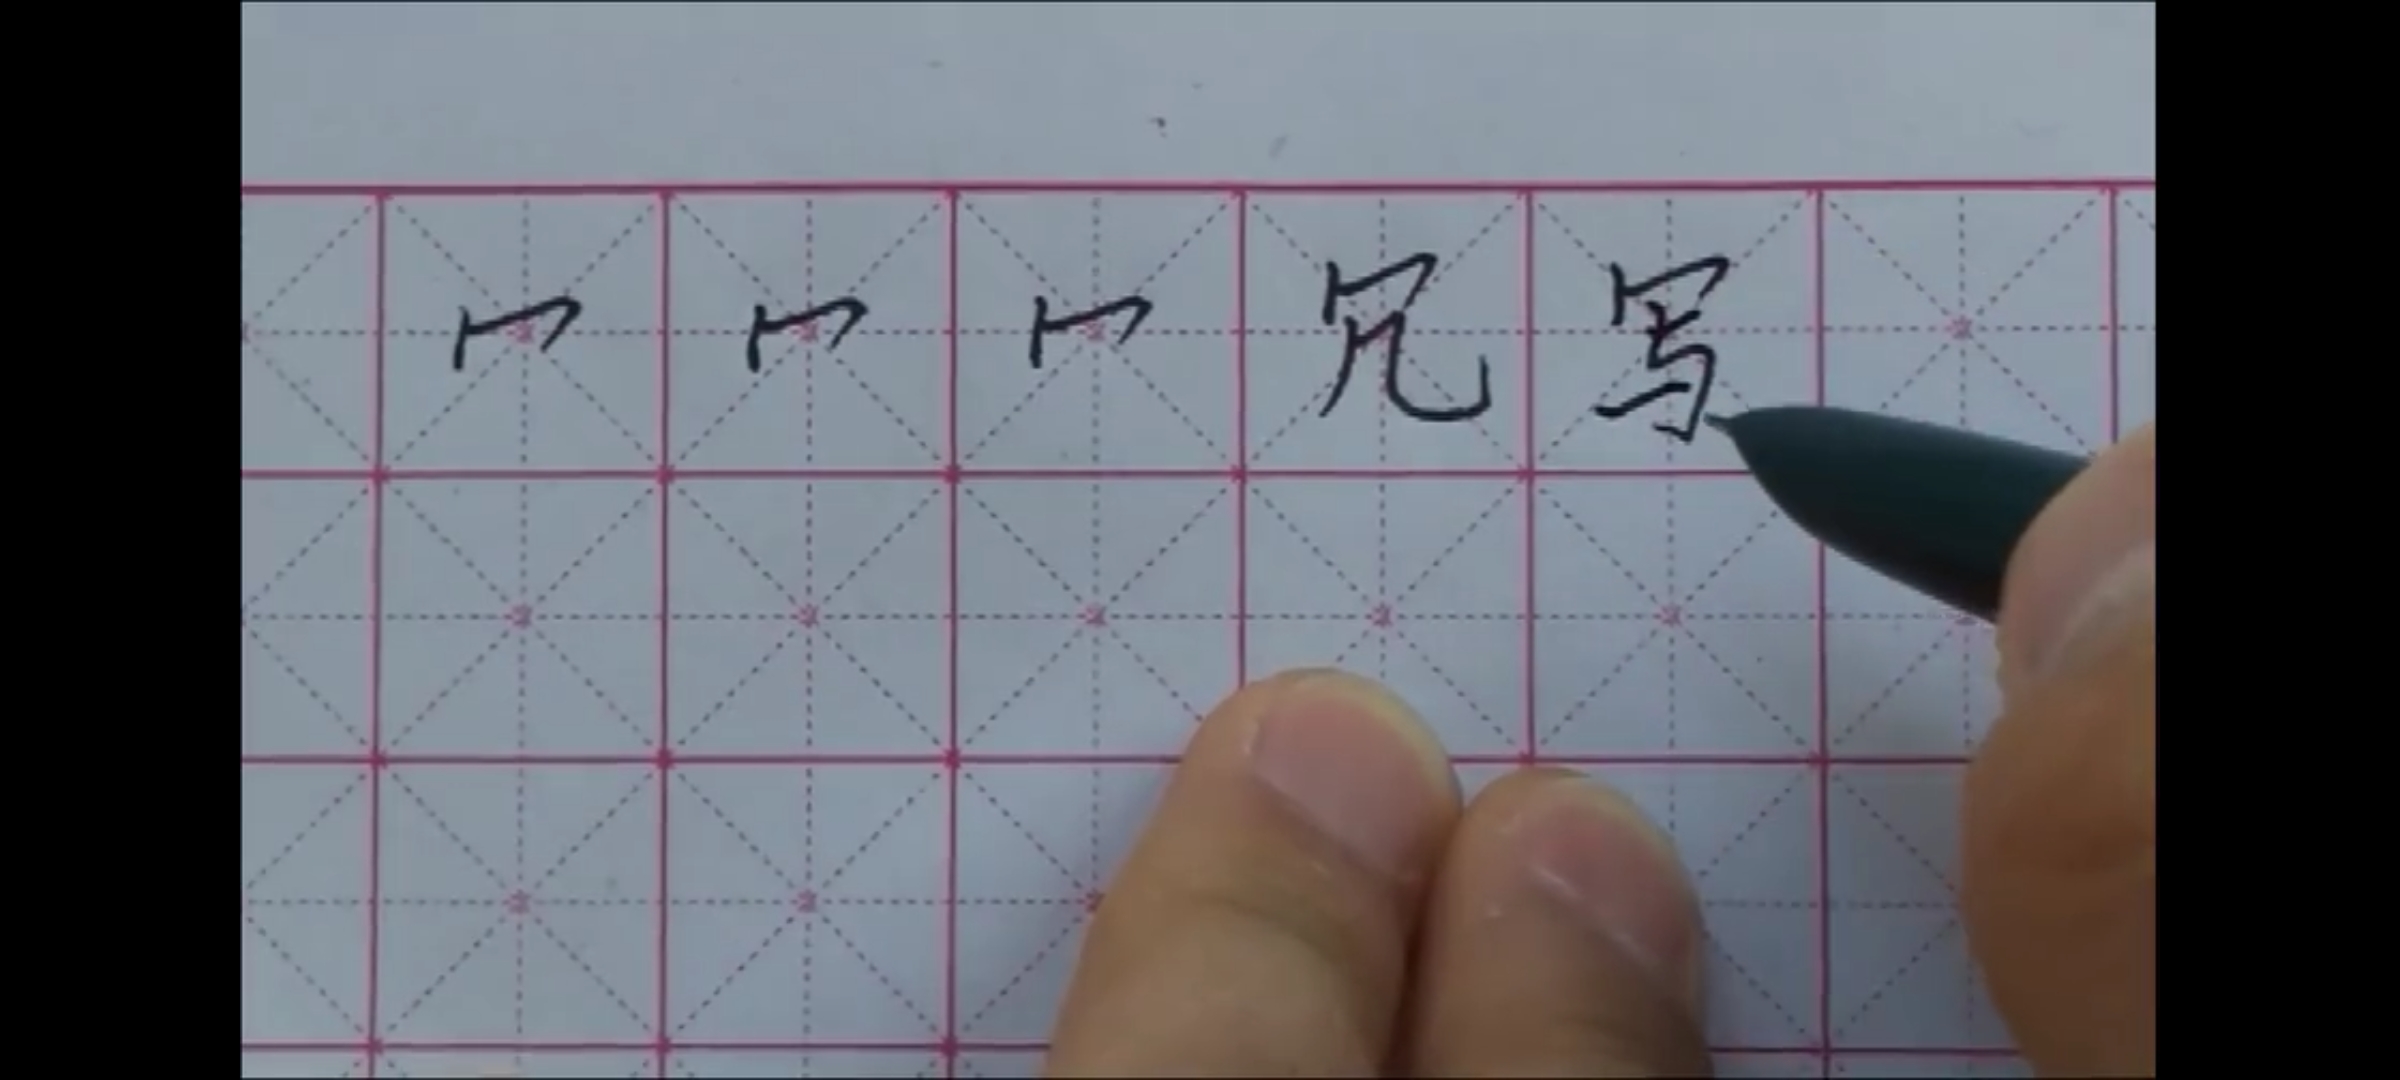 冖 冖 冖 冗 写